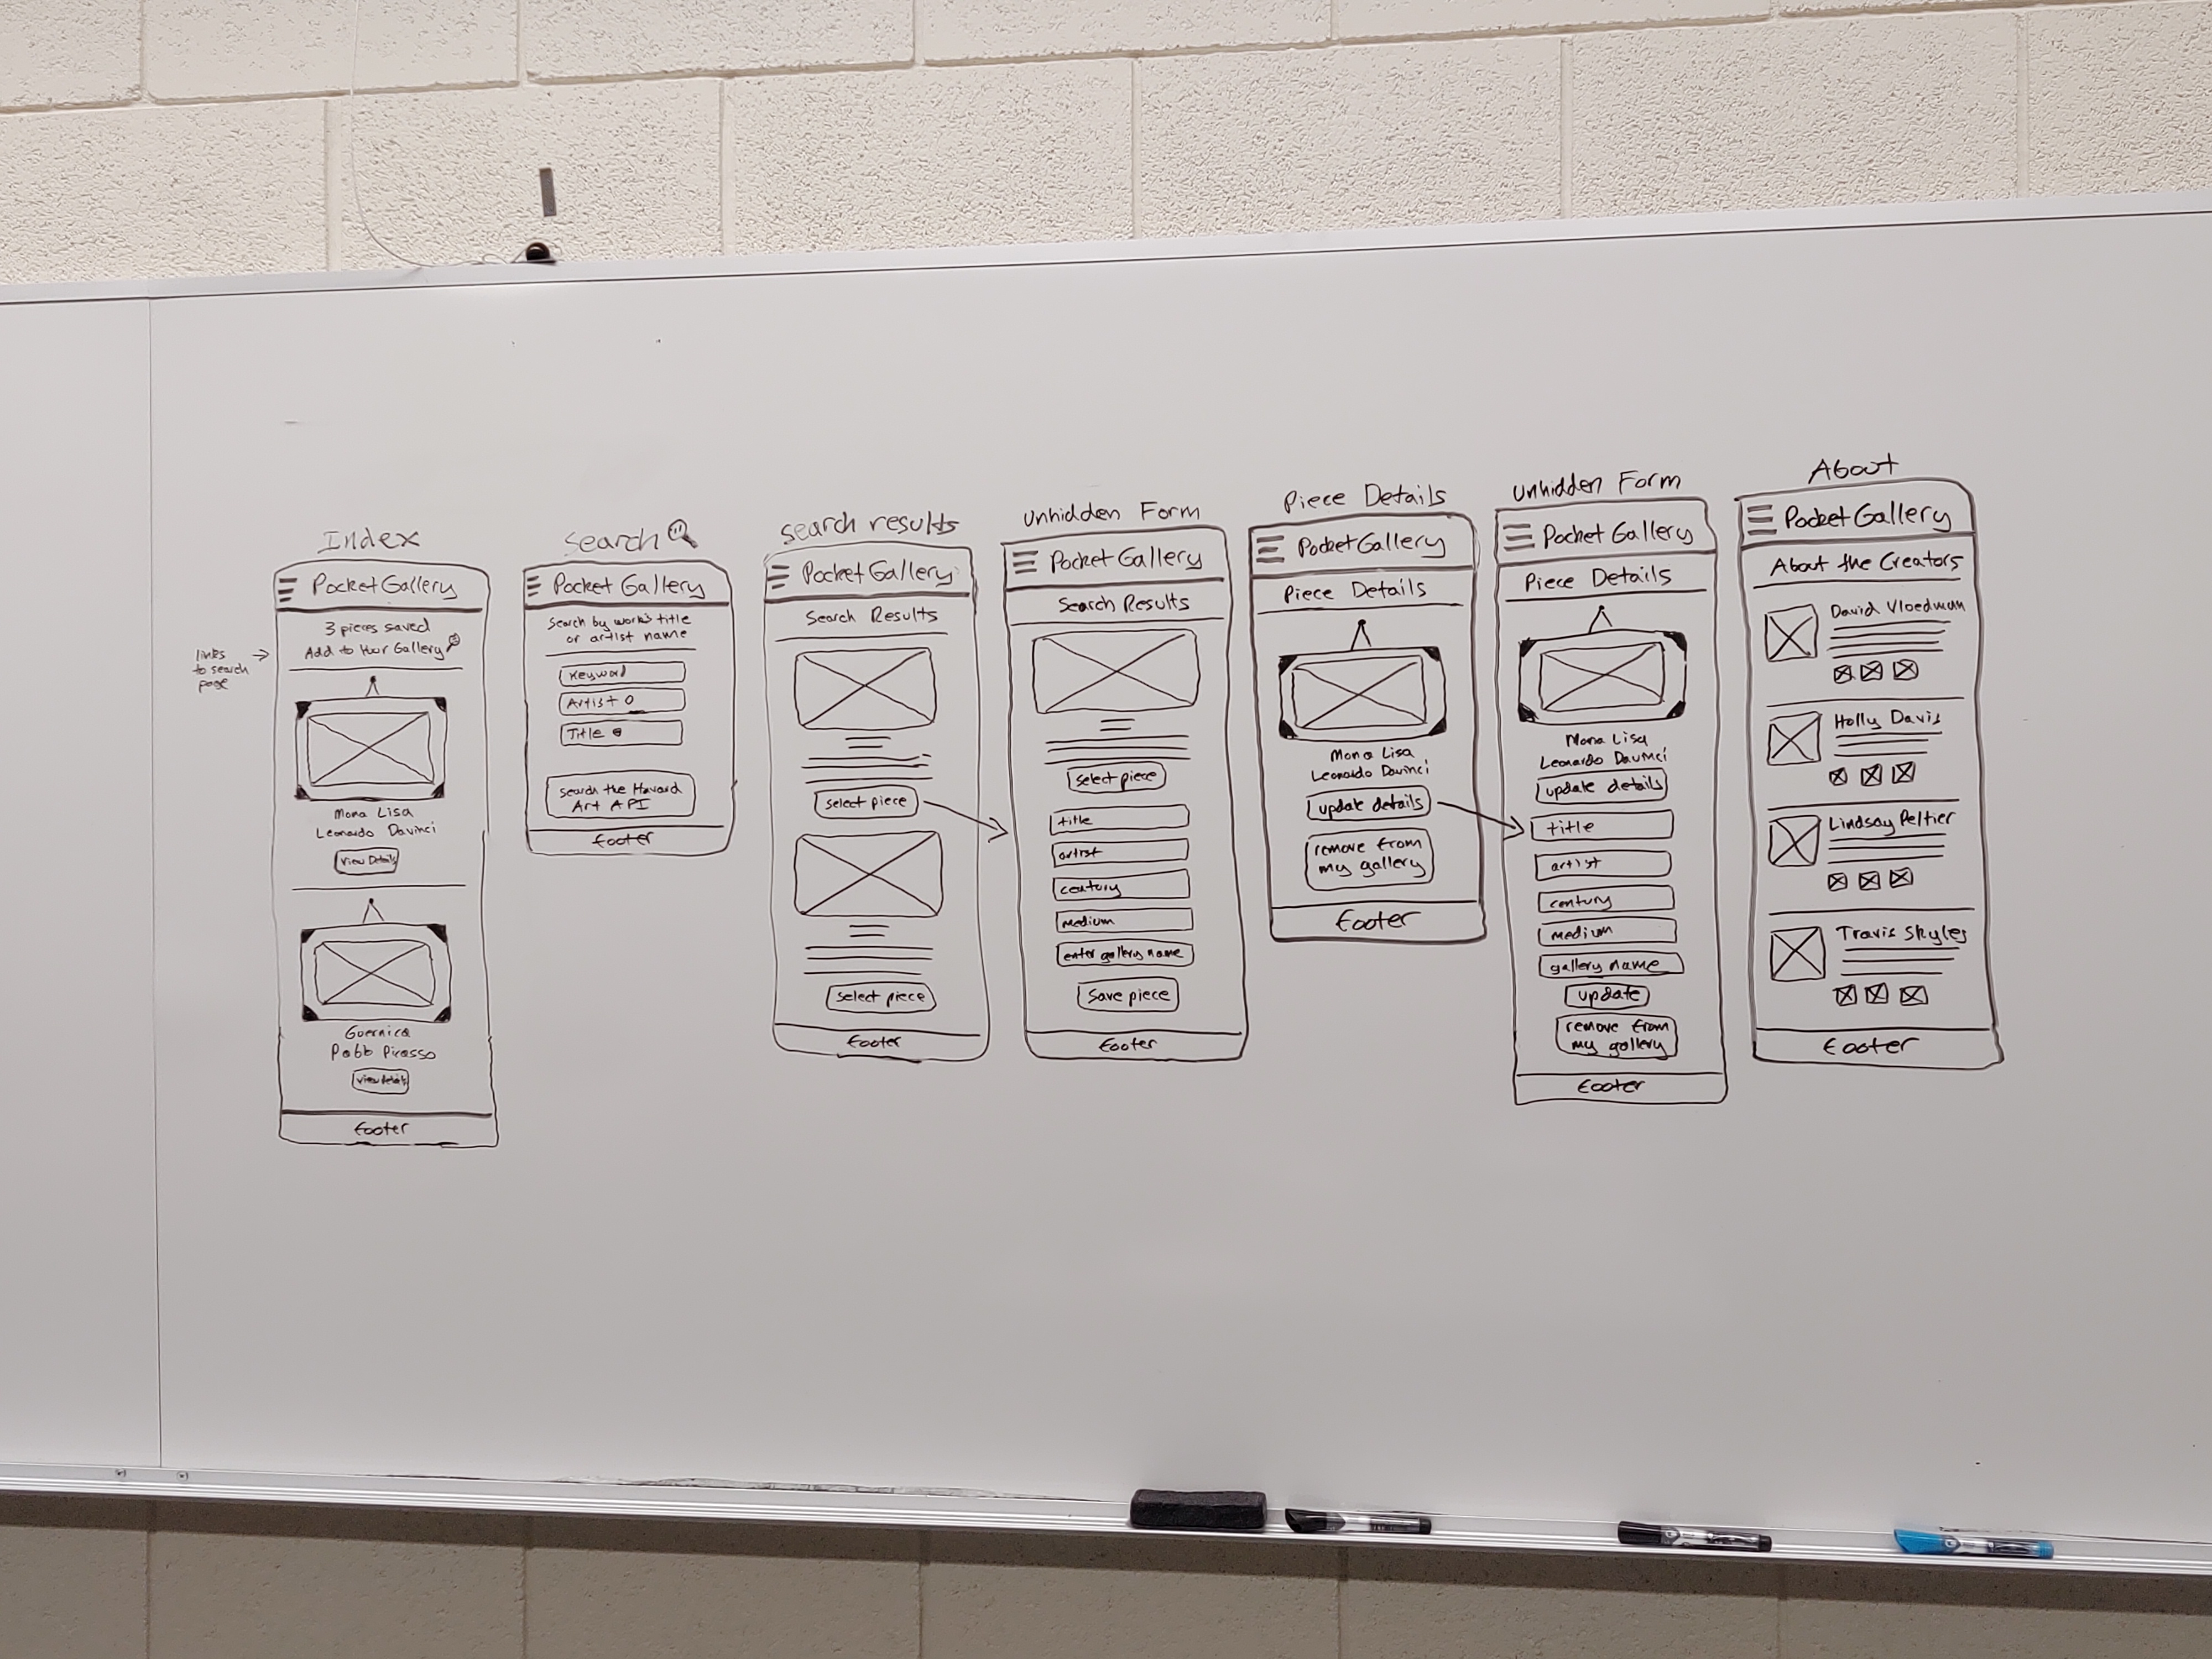 Index
PocketGallery
3 pieces saved
Add to Your Gallery
links
to search
page
Mona Lisa
Leonardo Davinci
View Details
Guernica
Pablo Picasso
View Details
Footer
Search
Pocket Gallery
Search by work's title
or artist name
Keyword
Artist
Title
Search the Havard
Art API
Footer
Search results
Pocket Gallery
Search Results
Select piece
Select piece
Footer
Unhidden Form
Pocket Gallery
Search Results
Select piece
title
artist
century
medium
enter gallery name
Save piece
Footer
Piece Details
PocketGallery
Piece Details
Mona Lisa
Leonardo Davinci
update details
remove from
my gallery
Footer
Unhidden Form
Pocket Gallery
Piece Details
Mona Lisa
Leonardo Davinci
update details
title
artist
century
medium
gallery name
update
remove from
my gallery
Footer
About
PocketGallery
About the Creators
David Vloedman
Holly Davis
Lindsay Peltier
Travis Skyles
Footer